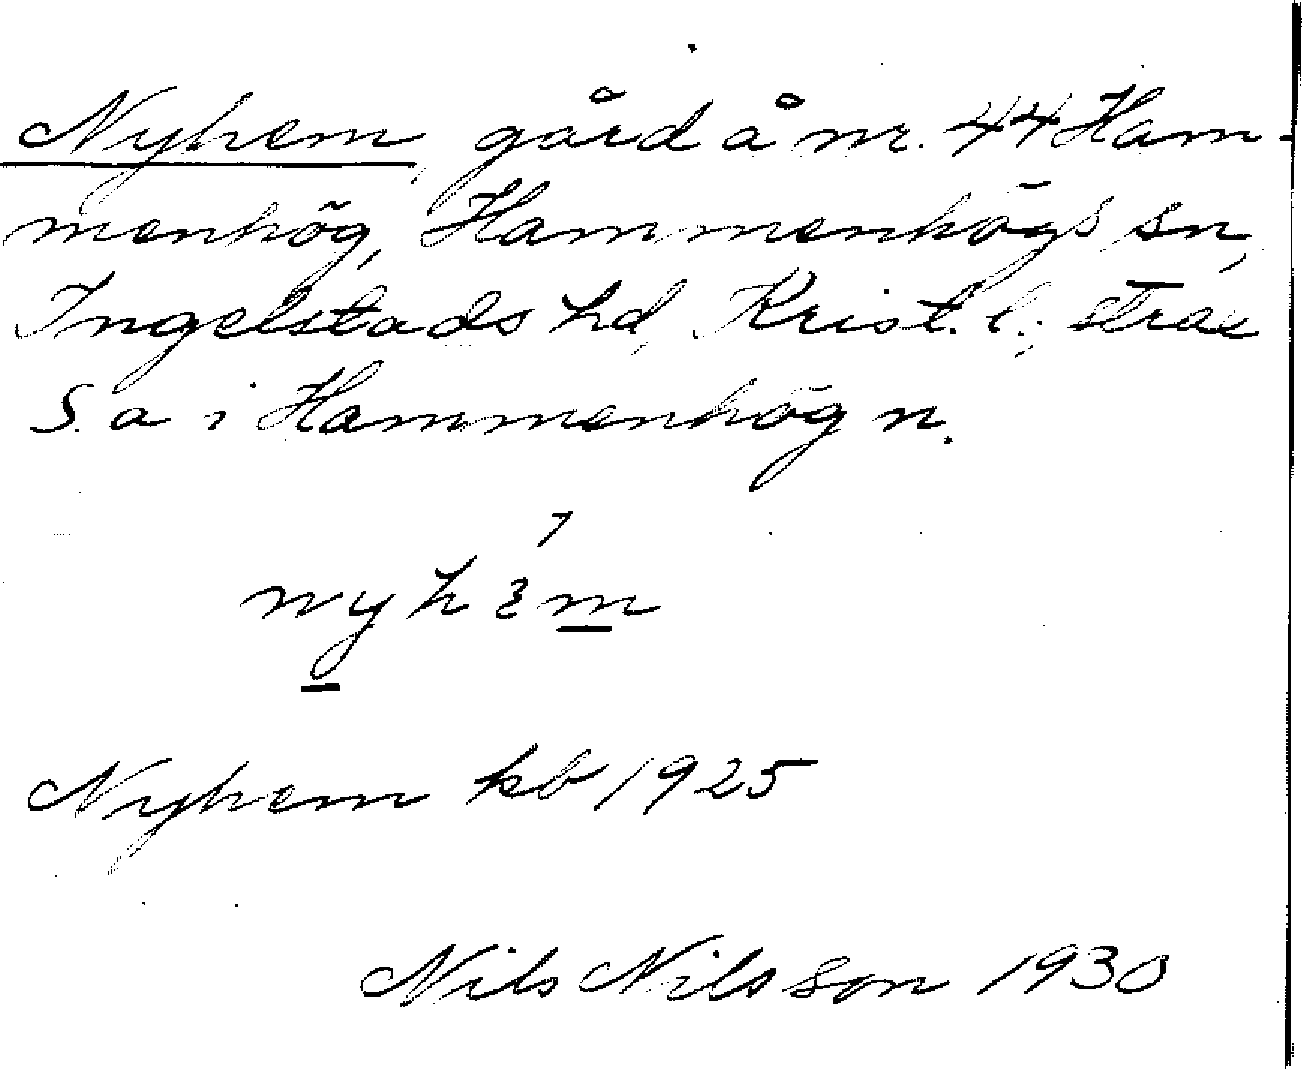 Nyhem, gård å nr. 44 Ham-
menhög, Hammenhögs sn,
Ingelstads hd, Krist. l.; strax
S. a i Hammenhög n.
nyhɛ́m
Nyhem kb 1925
Nils Nilsson 1930